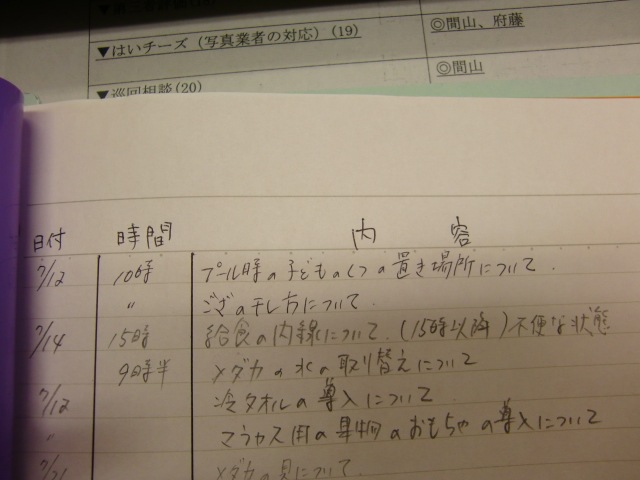 ▼はいチーズ（写真業者の対応）(19)
◎間山、府藤
◎間山
▼巡回相談(20)
日付 時間 内容
7/12 10時 プール時の子どものくつの置き場所について.
〃 ござの干し方について.
7/14 15時 給食の内線について.(15時以降)不便な状態
9時半 メダカの水の取り替えについて
7/12 冷タオルの導入について
〃 マラカス用の果物のおもちゃの導入について
7/21 メダカの具について.